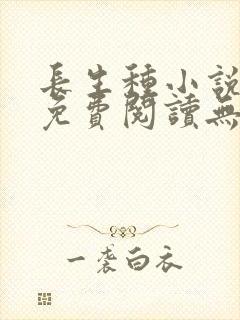 長生種小說
免費閱讀無
一袭白衣